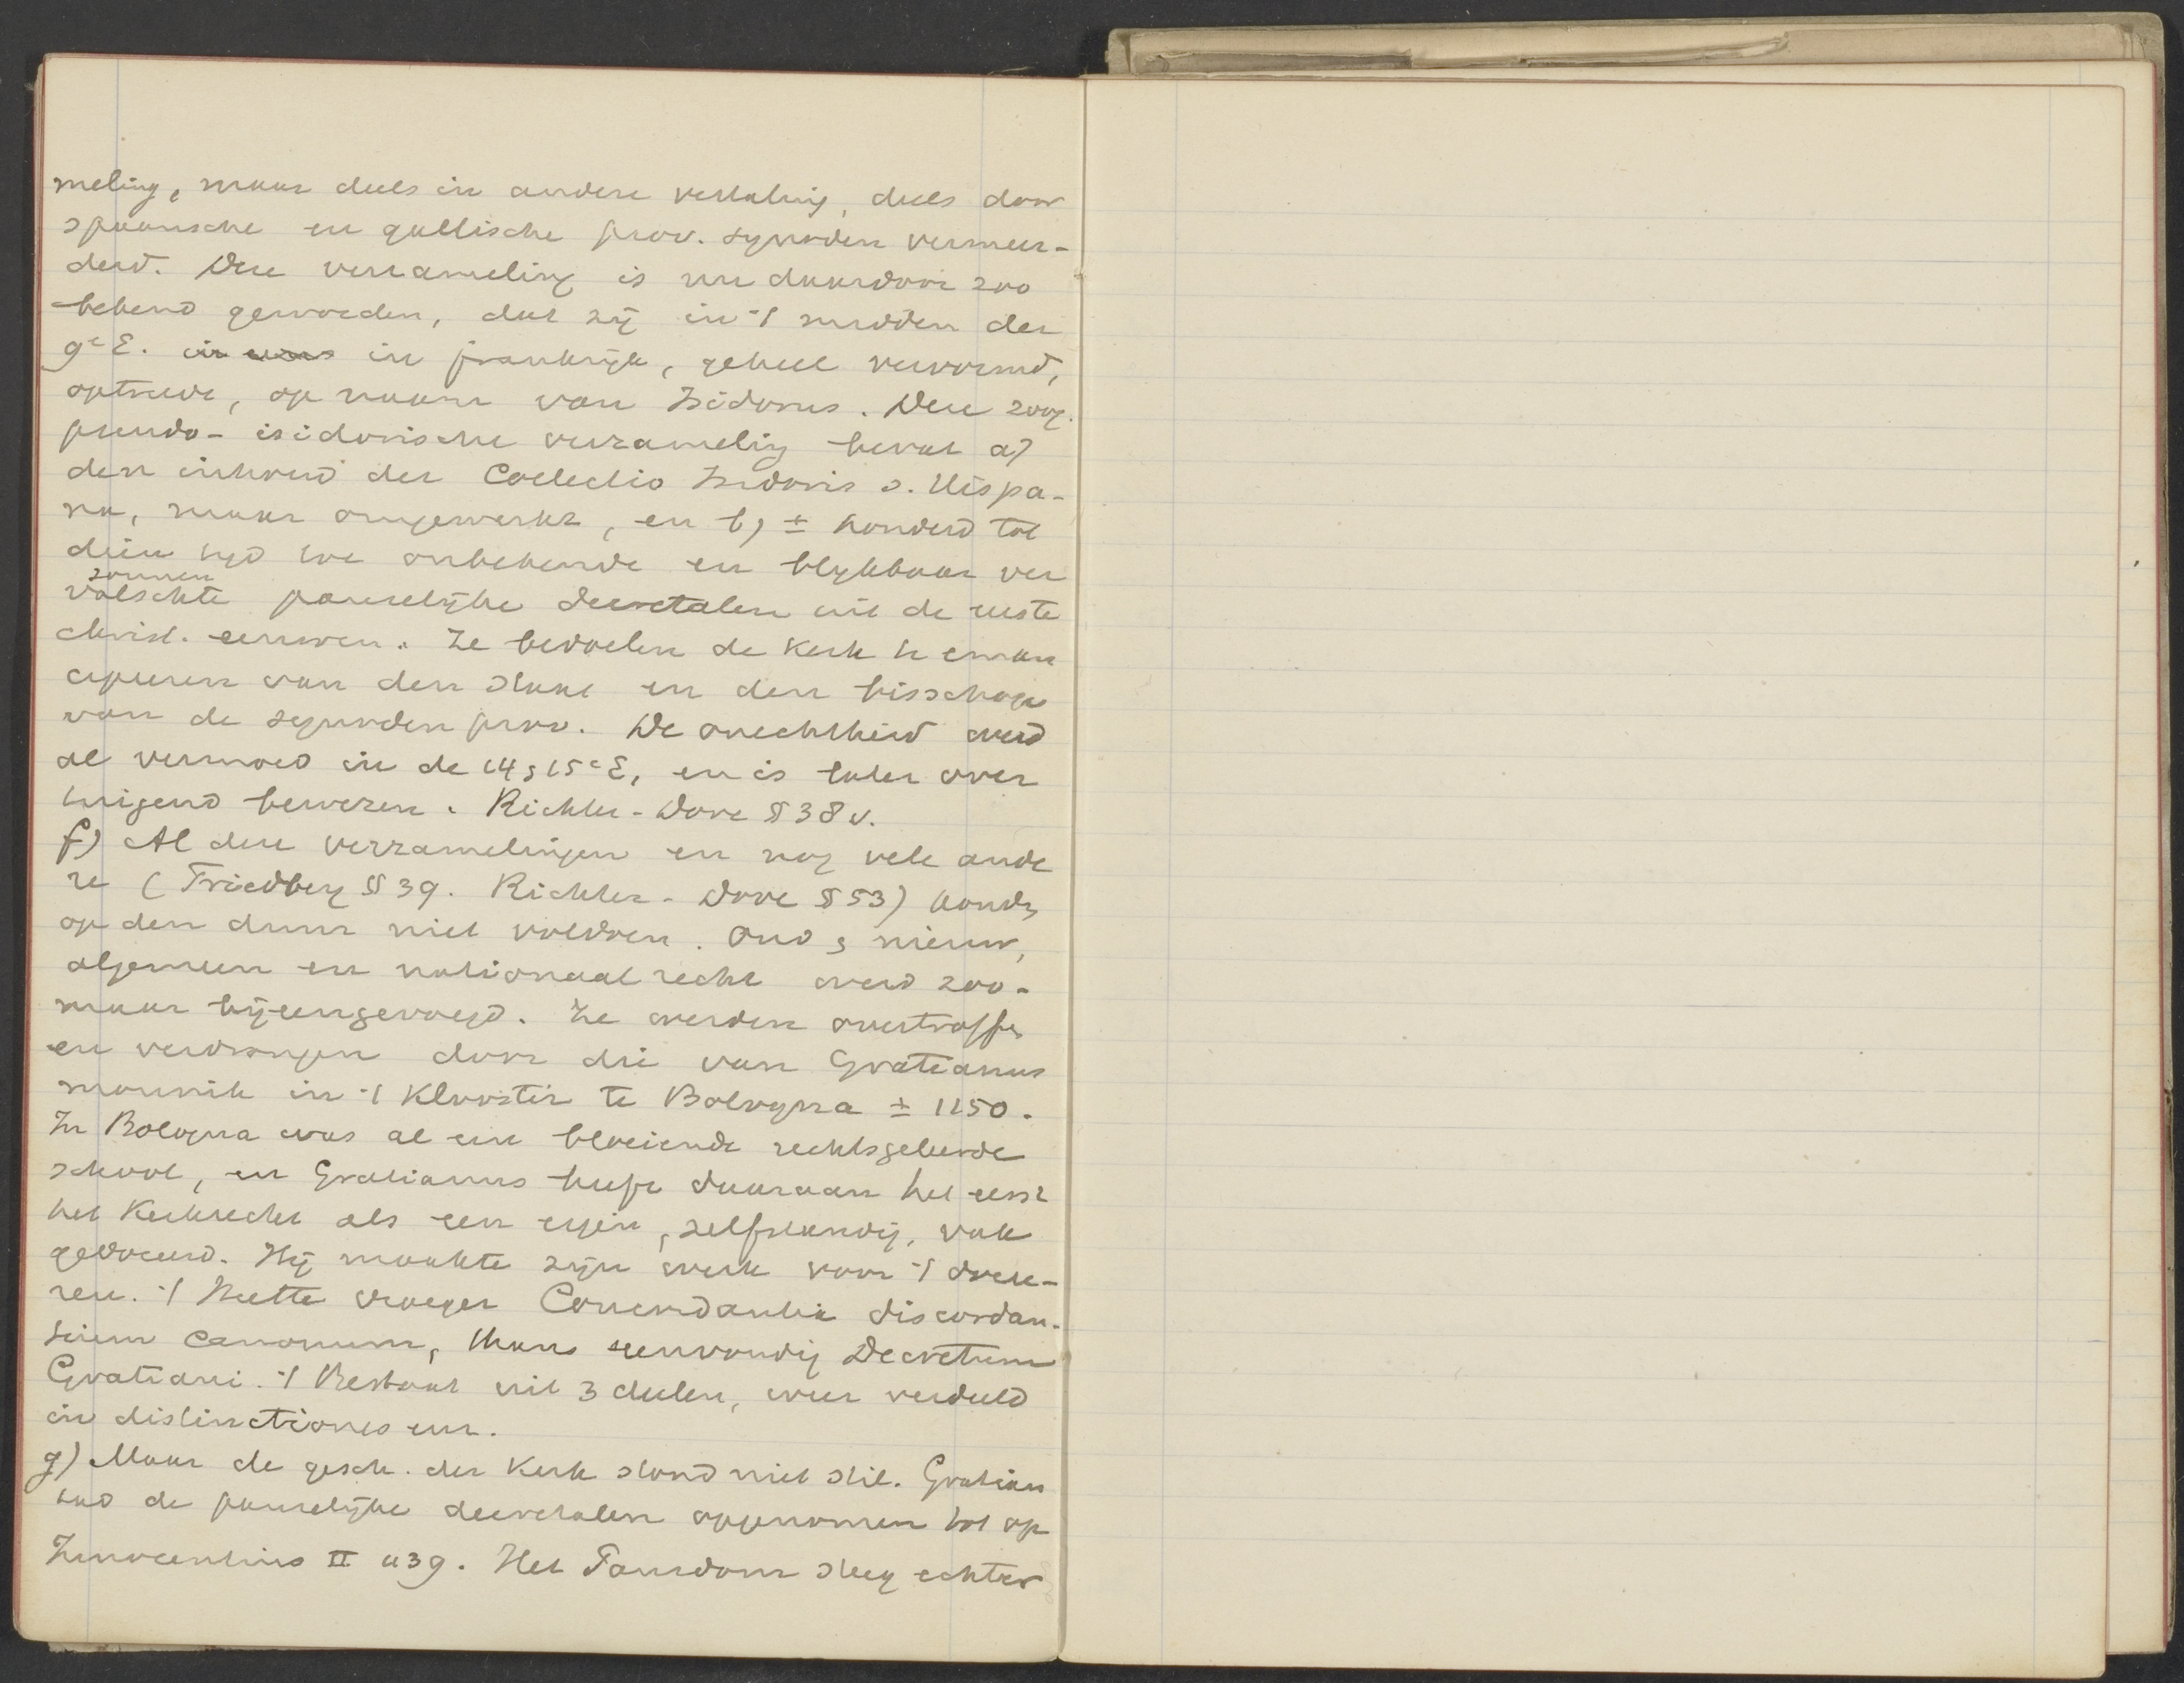 meling, maar deels in andere vertaling, deels door
spaansche en gallische prov. synoden vermeer-
derd. Deze verzameling is nu daardoor zoo
bekend geworden, dat zij in 't midden der
9e E. in in frankrijk, geheel vervormd,
optrede, op naam van Isidorus. Deze zoog.
pseudo-isidorische verzameling bevat a)
den inhoud der Collectio Isidoris s. Hispa-
na, maar omgewerkt, en b) ± honderd tot
dien tijd toe onbekende en blijkbaar ver
zonnen
valschte pauselijke decretalen uit de eerste
christ. eeuwen. Ze bedoelen de Kerk te eman
cipeeren van den staat en den bisschop
van de synoden prov. De onechtheid werd
al vermoed in de 14 & 15e E, en is later over
tuigend bewezen. Richter-Dove § 38 v.
f) Al deze verzamelingen en nog vele ande
re (Friedberg § 39. Richter-Dove § 53) konden
op den duur niet voldoen. Oud & nieuw,
algemeen en nationaal recht werd zoo-
maar bijeengevoegd. Ze werden overtroffen
en verdrongen door die van Gratianus
monnik in 't Klooster te Bologna ± 1150.
In Bologna was al een bloeiende rechtsgeleerde
school, en Gratianus heeft daaraan het eerst
het Kerkrecht als een eigen, zelfstandig, vak
gedoceerd. Hij maakte zijn werk voor 't doce-
ren. 't Heette vroeger Concordantia discordan-
tium canonum, thans eenvoudig Decretum
Gratiani. 't Bestaat uit 3 deelen, weer verdeeld
in distinctiones enz.
g) Maar de gesch. der Kerk stond niet stil. Gratian
had de pauselijke decretalen opgenomen tot op
Innocentius II 1139. Het Pausdom steeg echter